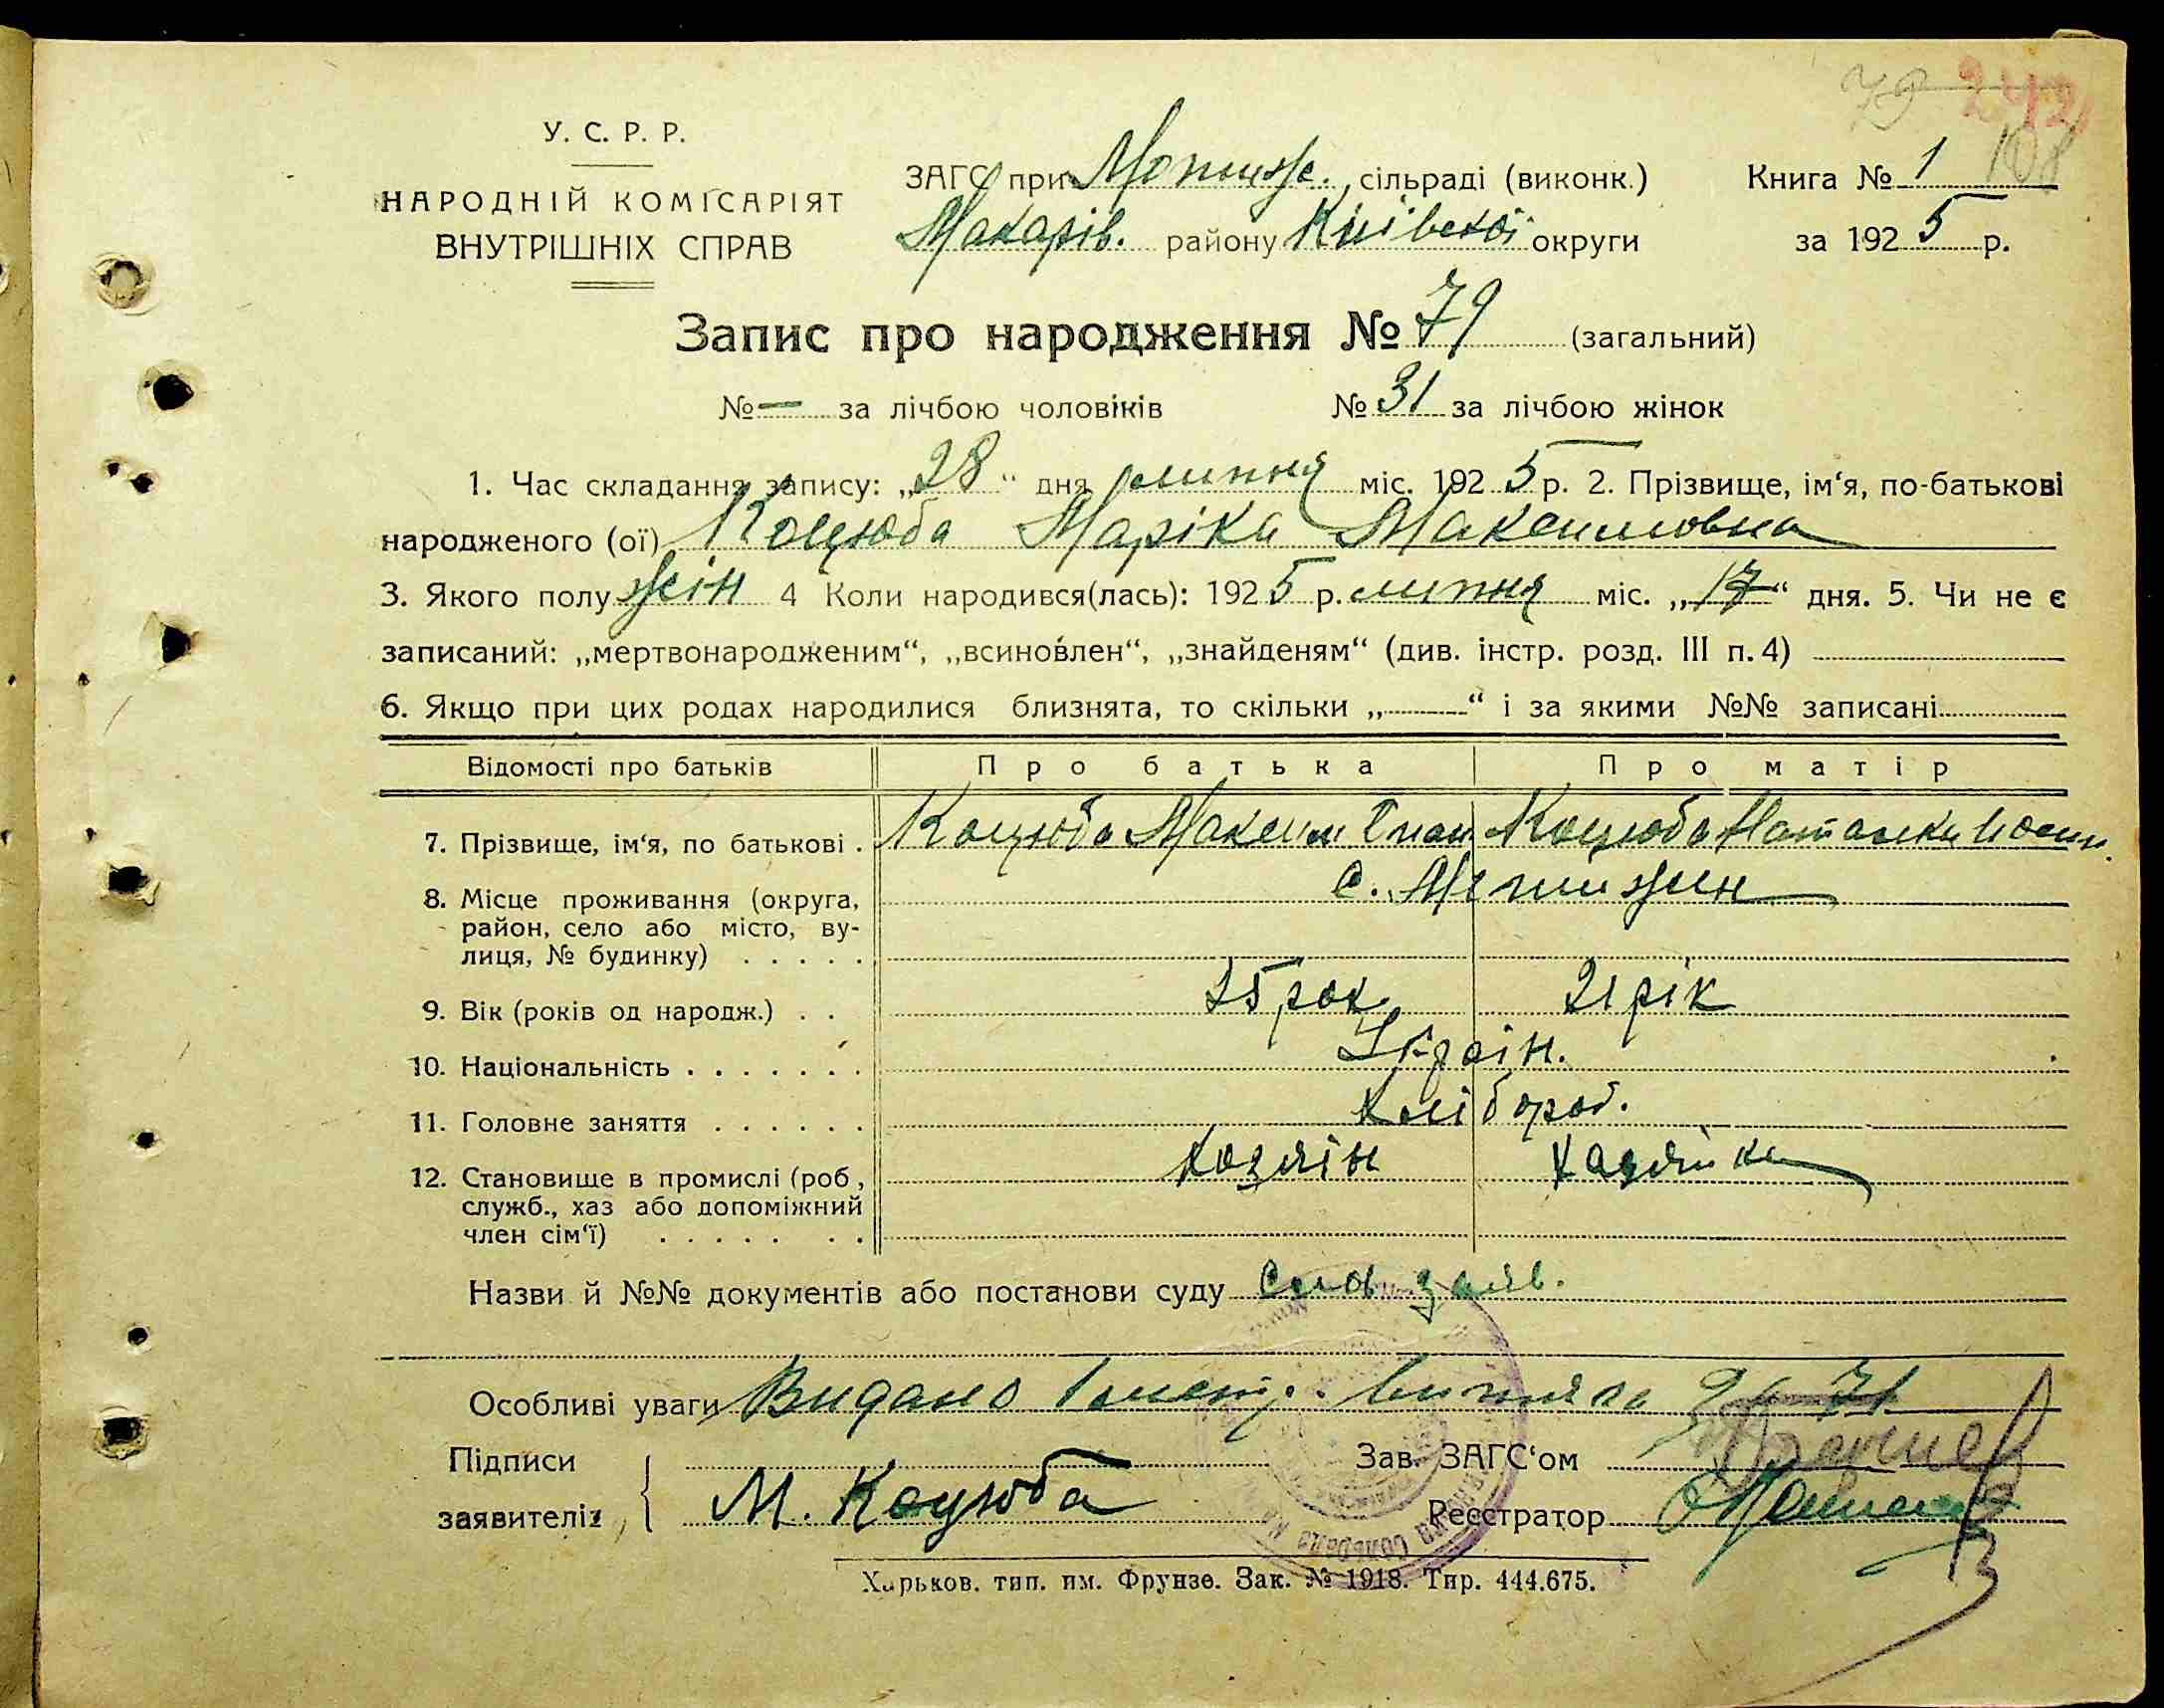 79 242
108
У. С. Р. Р.
НАРОДНІЙ КОМІСАРІЯТ
ВНУТРІШНІХ СПРАВ
ЗАГС при Мотиж. сільраді (виконк.)
Макарів. району Київської округи
Книга № 1
за 1925 р.
Запис про народження № 79 (загальний)
№ — за лічбою чоловіків № 31 за лічбою жінок
1. Час складання запису: „28“ дня липня міс. 1925 р. 2. Прізвище, ім‘я, по-батькові
народженого (ої) Коцюба Маріка Максимовна
3. Якого полу жін 4 Коли народився(лась): 1925 р. липня міс. „17“ дня. 5. Чи не є
записаний: „мертвонародженим“, „всиновлен“, „знайденям“ (див. інстр. розд. III п. 4)
6. Якщо при цих родах народилися близнята, то скільки „—“ і за якими №№ записані
Відомості про батьків Про батька Про матір
7. Прізвище, ім‘я, по батькові . Коцюба Максим Коцюба Наталка Йосип.
8. Місце проживання (округа, с. Мотижин
район, село або місто, ву-
лиця, № будинку) . . . . .
9. Вік (років од народж.) . . 25 рок 21 рік
10. Національність . . . . . . . Україн.
11. Головне заняття . . . . . . Хлібороб.
12. Становище в промислі (роб, хозяін хазяйка
служб., хаз або допоміжний
член сім‘ї) . . . . . . .
Назви й №№ документів або постанови суду Слов заяв.
Особливі уваги Видано витяга 71
Підписи
заявителів М. Коцюба
Зав. ЗАГС‘ом
Реєстратор
Харьков. тип. им. Фрунзе. Зак. № 1918. Тир. 444.675.